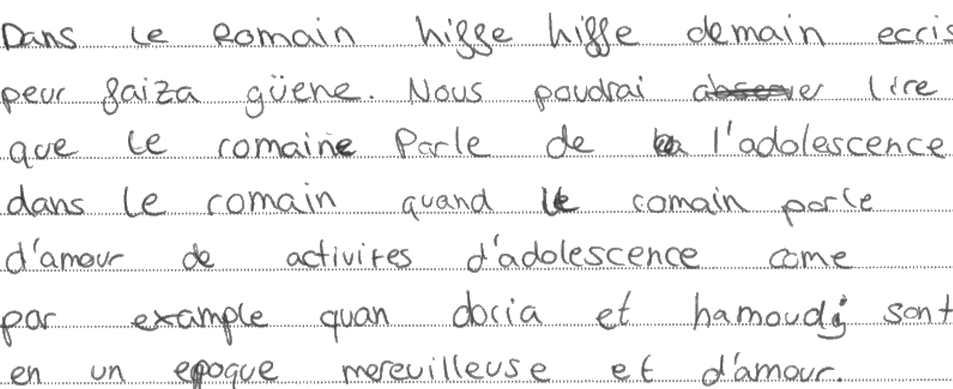 Dans le Romain hiffe hiffe demain eccis
peur faiza güene. Nous poudrai lire
que le romaine Parle de l'adolescence
dans le romain quand le romain parle
d'amour de activites d'adolescence come
par example quan docia et hamoudi sont
en un epoque mereuilleuse et d'amour.